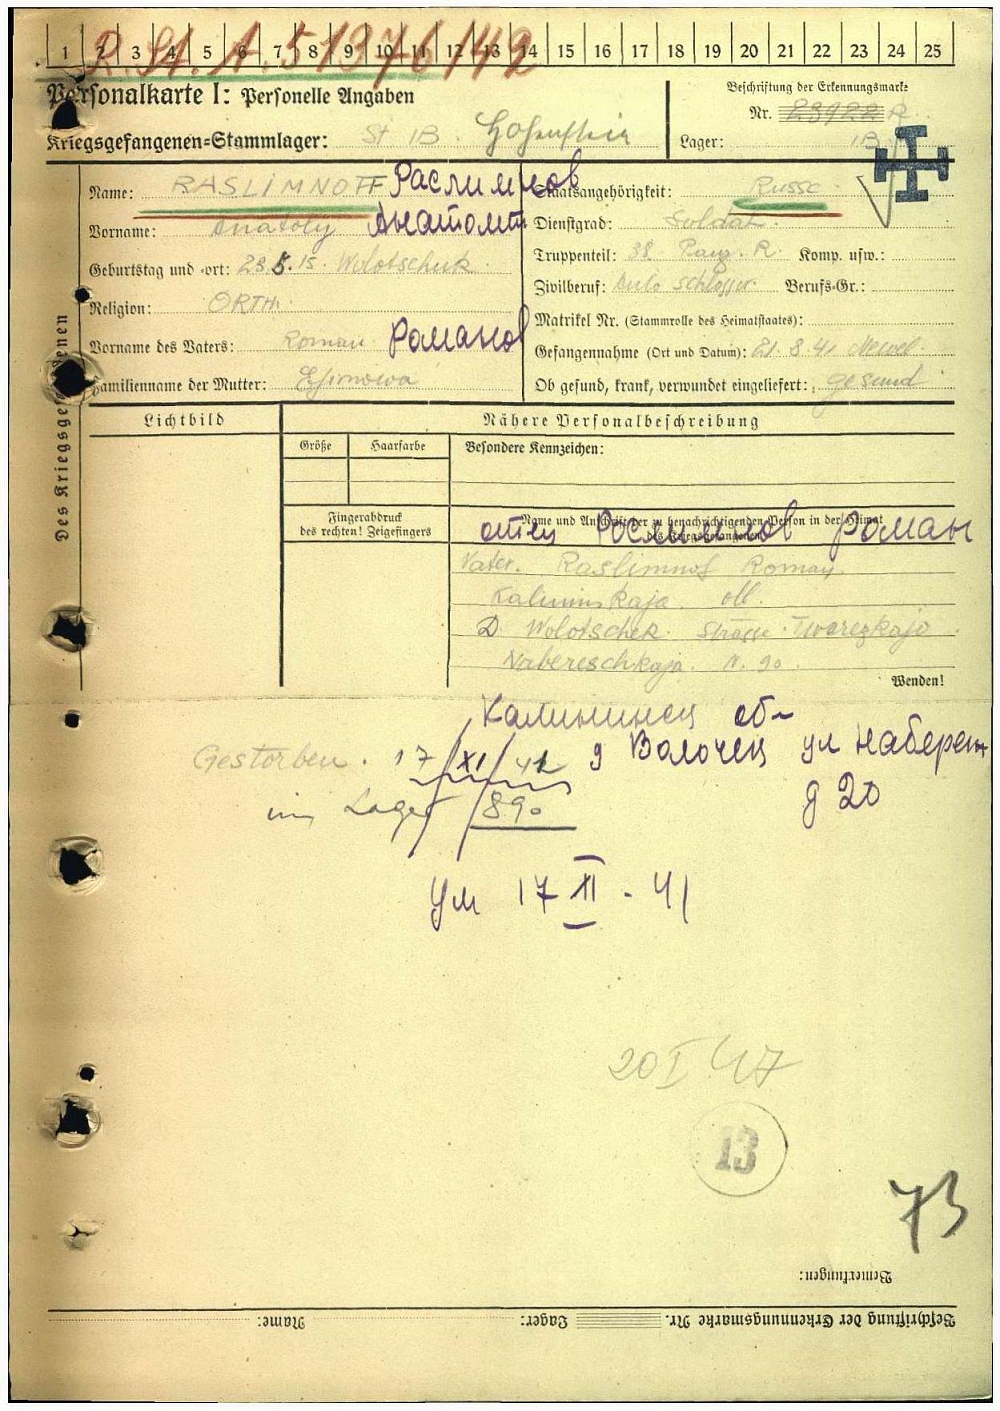 1 2 3 4 5 6 7 8 9 10 11 12 13 14 15 16 17 18 19 20 21 22 23 24 25
R. St. A. 51376/42
Personalkarte I: Personelle Angaben
Kriegsgefangenen-Stammlager: St IB. Hohenstein
Beschriftung der Erkennungsmarke
Nr. 23922 R
Lager: IB
Des Kriegsgefangenen
Name: RASLIMNOFF Раслимнов
Vorname: Anatoly Анатолий
Geburtstag und -ort: 23.5.15. Wolotschek
Religion: ORTH.
Vorname des Vaters: Roman Романов
Familienname der Mutter: Efimowa
Staatsangehörigkeit: Russe
Dienstgrad: Soldat
Truppenteil: 38. Panz. R. Komp. usw.:
Zivilberuf: Auto Schlosser Berufs-Gr.:
Matrikel Nr. (Stammrolle des Heimatstaates):
Gefangennahme (Ort und Datum): 21.8.41 Newel
Ob gesund, krank, verwundet eingeliefert: gesund
Lichtbild
Nähere Personalbeschreibung
Größe Haarfarbe Besondere Kennzeichen:
Fingerabdruck
des rechten! Zeigefingers
Name und Anschrift der zu benachrichtigenden Person in der Heimat
des Kriegsgefangenen
отец Раслимнов Роман
Vater. Raslimnof Roman
Kalininskaja obl.
D Wolotschek Strasse Twerezkajo
Nabereschkaja. N. 90.
Wenden!
Калининец об-
Gestorben. 17/XI/41 д Волочец ул набереж
im Lager 890 д 20
Ум 17 XI - 41
20 I 47
13
73
Bemerkungen:
Beschriftung der Erkennungsmarke Nr. Lager: Name: